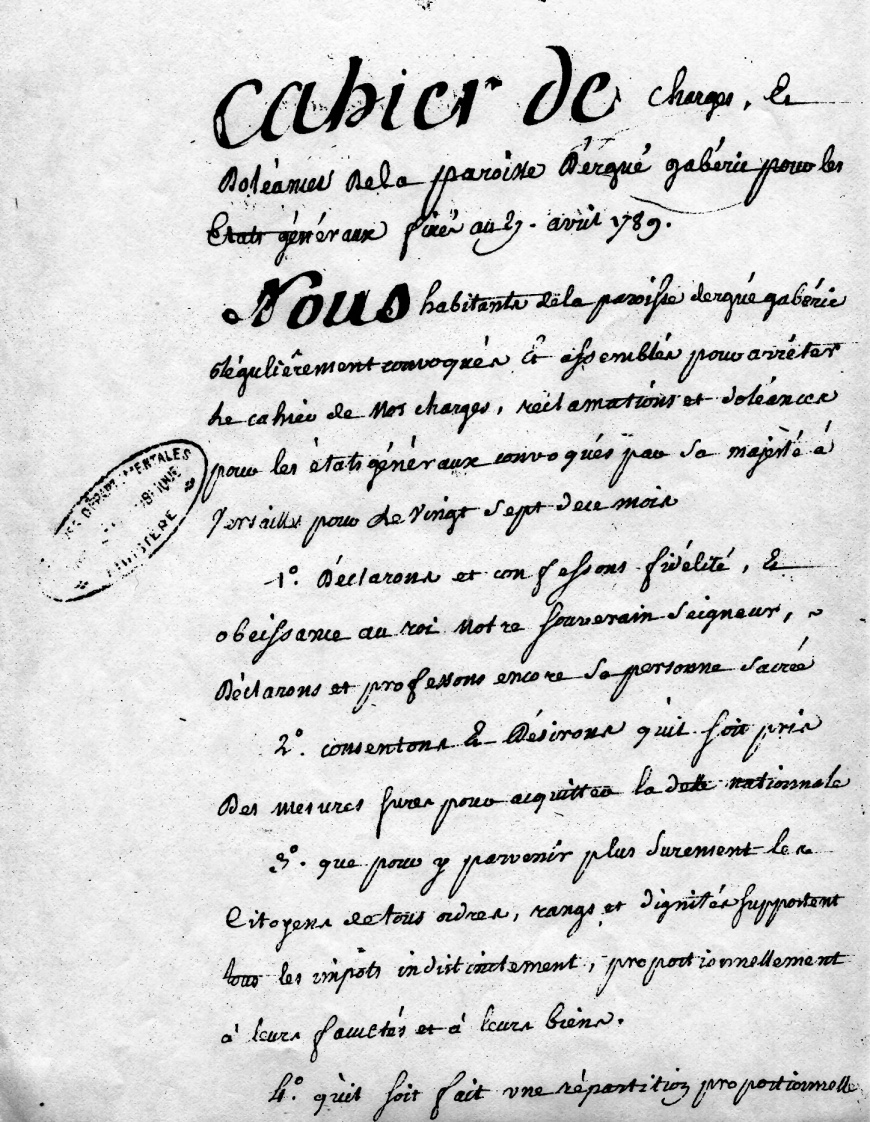 Cahier de charges, &
Doléances de la paroisse D'ergué gabéric pour les
Etats généraux fixés au 27. avril 1789.
Nous habitants de la paroisse d'ergué gabéric
Régulièrement convoqués Et assemblés pour arrêter
Le cahier de nos charges, réclamations et doléances
pour les états généraux convoqués par Sa majesté à
Versailles pour le Vingt Sept de ce mois
1°. Déclarons et confessons fidélité, &
obeissance au roi notre souverain Seigneur,
Déclarons et professons encore Sa personne Sacrée
2°. consentons & Désirons qu'il soit pris
Des mesures sures pour acquitter la dette nationnale
3°. que pour y parvenir plus Surement les
Citoyens de tous ordres, rangs et dignités supportent
tous les impôts indistinctement, proportionnellement
à leurs facultés et à leurs biens.
4°. qu'il soit fait une répartition proportionnelle
DÉPARTEMENTALES
FINISTÈRE